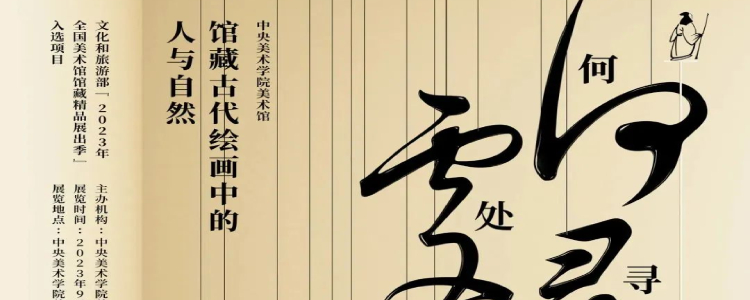 何
处
寻
中央美术学院美术馆
馆藏古代绘画中的
人与自然
文化和旅游部「2023年
全国美术馆馆藏精品展出季」
入选项目
主办机构：中央美术学院
展览时间：2023年9
展览地点：中央美术学院